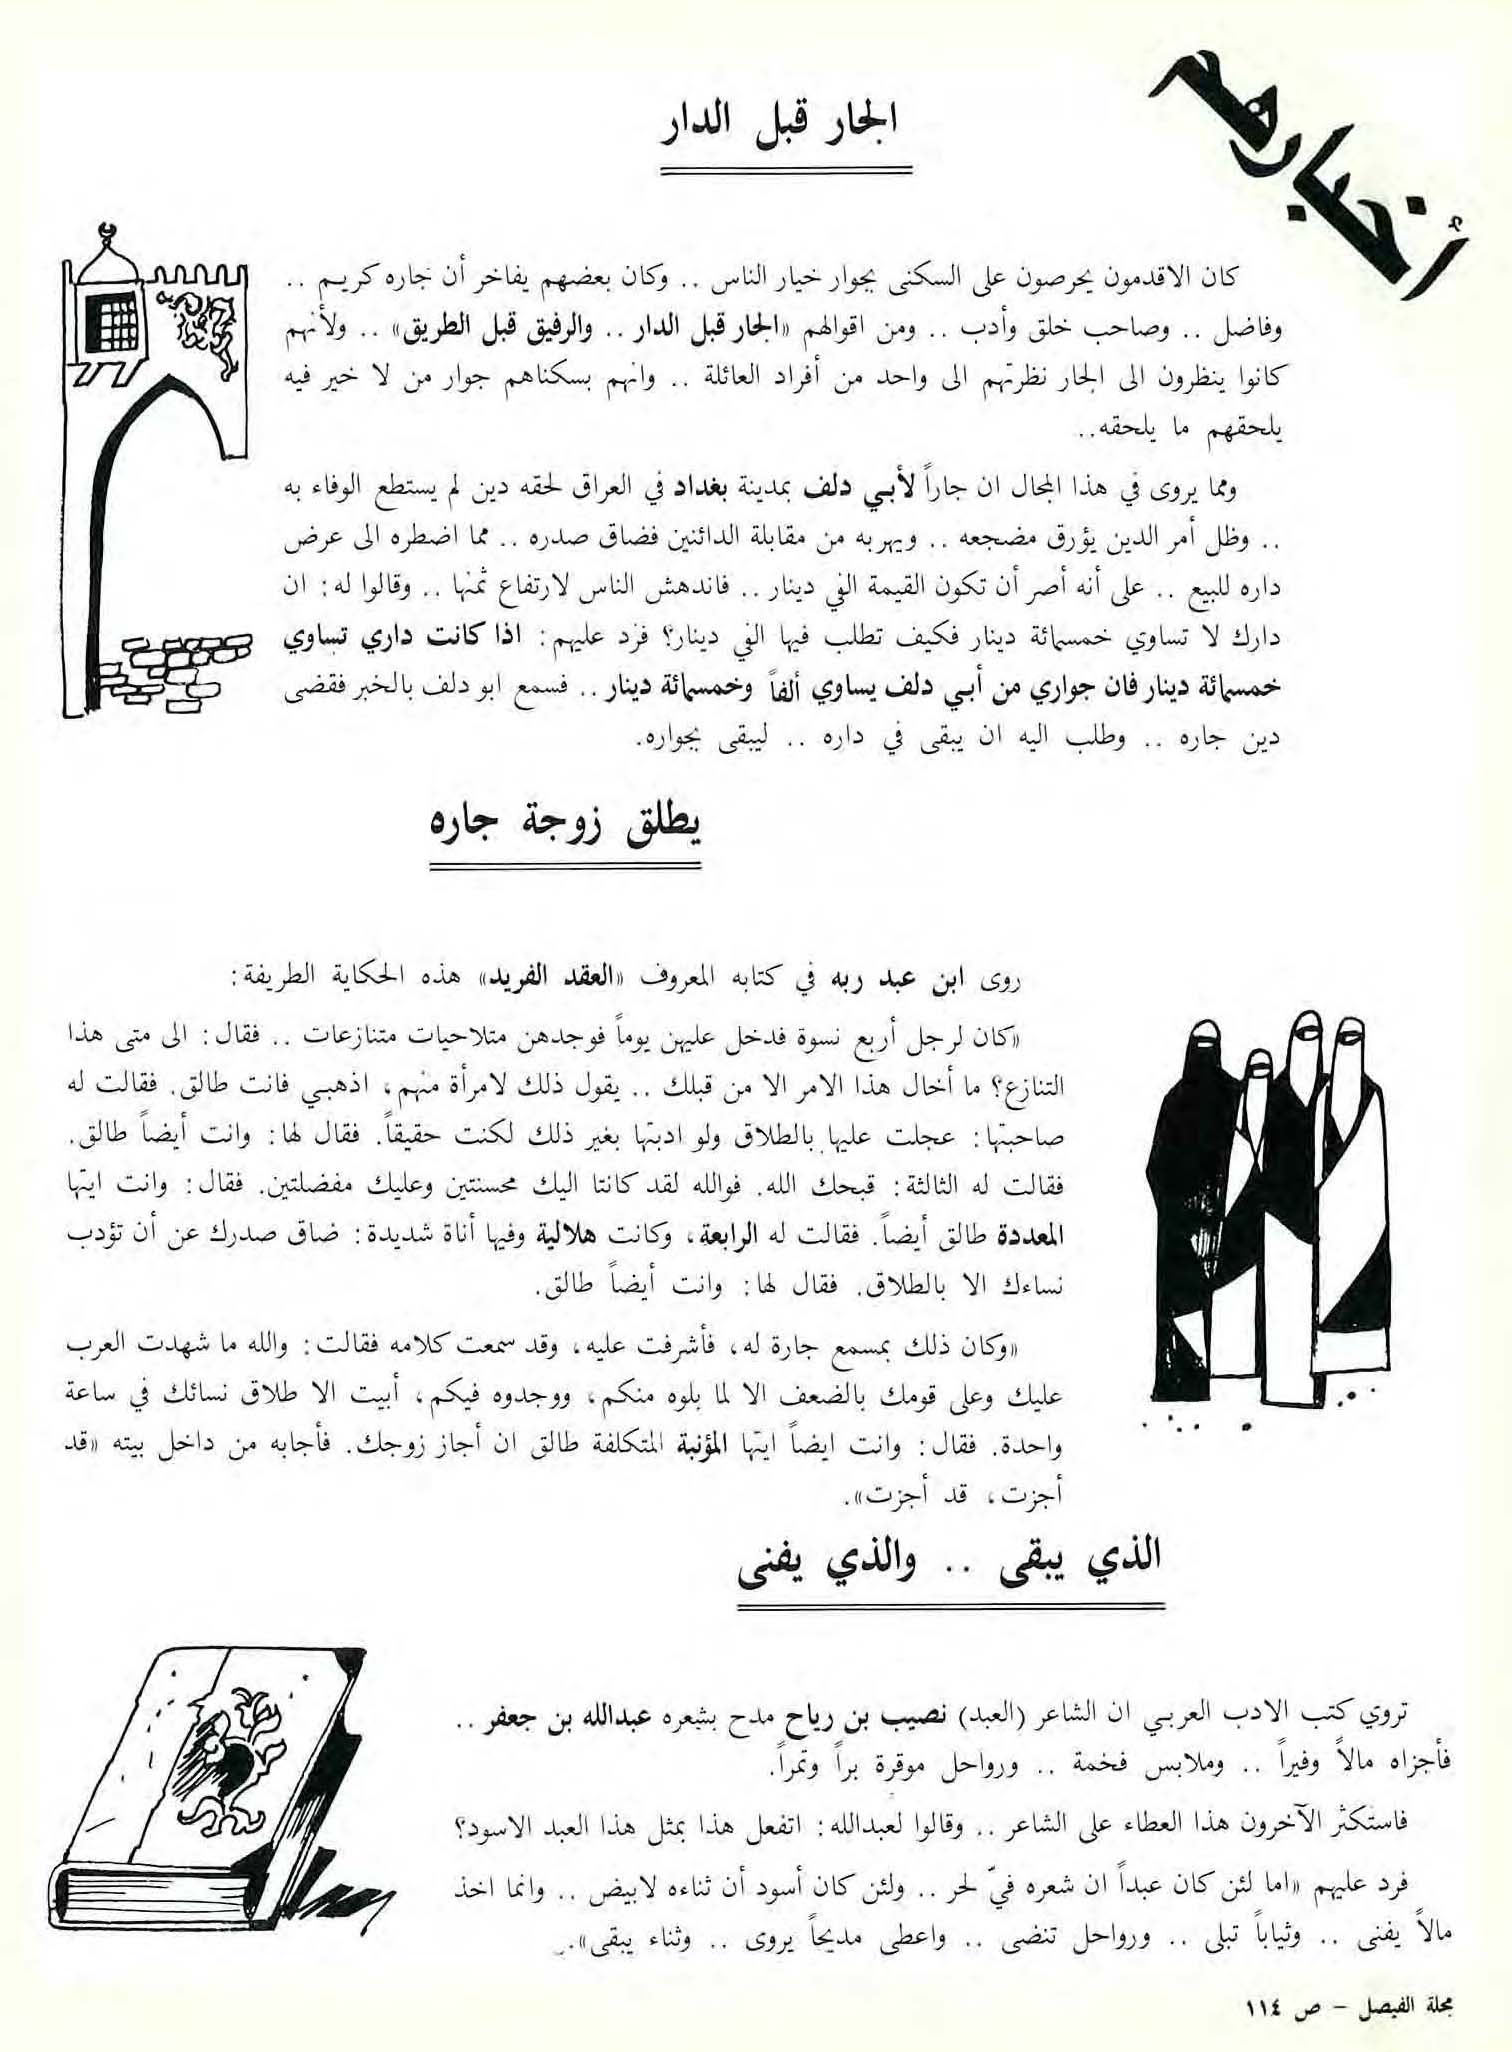 أخبارهم
الجار قبل الدار
كان الاقدمون يحرصون على السكنى بجوار خيار الناس .. وكان بعضهم يفاخر أن جاره كريم ..
وفاضل .. وصاحب خلق وأدب .. ومن اقوالهم «الجار قبل الدار .. والرفيق قبل الطريق» .. ولأنهم
كانوا ينظرون الى الجار نظرتهم الى واحد من أفراد العائلة .. وانهم بسكناهم جوار من لا خير فيه
يلحقهم ما يلحقه..
ومما يروى في هذا المجال ان جاراً لأبي دلف بمدينة بغداد في العراق لحقه دين لم يستطع الوفاء به
.. وظل أمر الدين يؤرق مضجعه .. ويهربه من مقابلة الدائنين فضاق صدره .. مما اضطره الى عرض
داره للبيع .. على أنه أصر أن تكون القيمة الفي دينار .. فاندهش الناس لارتفاع ثمنها .. وقالوا له: ان
دارك لا تساوي خمسمائة دينار فكيف تطلب فيها الفي دينار؟ فرد عليهم: اذا كانت داري تساوي
خمسمائة دينار فان جواري من أبي دلف يساوي ألفاً وخمسمائة دينار .. فسمع ابو دلف بالخبر فقضى
دين جاره .. وطلب اليه ان يبقى في داره .. ليبقى بجواره.
يطلق زوجة جاره
روى ابن عبد ربه في كتابه المعروف «العقد الفريد» هذه الحكاية الطريفة:
«كان لرجل أربع نسوة فدخل عليهن يوماً فوجدهن متلاحيات متنازعات .. فقال: الى متى هذا
التنازع؟ ما أخال هذا الامر الا من قبلك .. يقول ذلك لامرأة منهم، اذهبي فانت طالق. فقالت له
صاحبتها: عجلت عليها بالطلاق ولو ادبتها بغير ذلك لكنت حقيقاً. فقال لها: وانت أيضاً طالق.
فقالت له الثالثة: قبحك الله. فوالله لقد كانتا اليك محسنتين وعليك مفضلتين. فقال: وانت ايتها
المعددة طالق أيضاً. فقالت له الرابعة، وكانت هلالية وفيها أناة شديدة: ضاق صدرك عن أن تؤدب
نساءك الا بالطلاق. فقال لها: وانت أيضاً طالق.
«وكان ذلك بمسمع جارة له، فأشرفت عليه، وقد سمعت كلامه فقالت: والله ما شهدت العرب
عليك وعلى قومك بالضعف الا لما بلوه منكم، ووجدوه فيكم، أبيت الا طلاق نسائك في ساعة
واحدة. فقال: وانت ايضاً ايتها المؤنبة المتكلفة طالق ان أجاز زوجك. فأجابه من داخل بيته «قد
أجزت، قد أجزت».
الذي يبقى .. والذي يفنى
تروي كتب الادب العربي ان الشاعر (العبد) نصيب بن رياح مدح بشعره عبدالله بن جعفر ..
فأجزاه مالاً وفيراً .. وملابس فخمة .. ورواحل موقرة براً وتمراً.
فاستكثر الآخرون هذا العطاء على الشاعر .. وقالوا لعبدالله: اتفعل هذا بمثل هذا العبد الاسود؟
فرد عليهم «اما لئن كان عبداً ان شعره فيّ لحر .. ولئن كان أسود أن ثناءه لابيض .. وانما اخذ
مالاً يفنى .. وثياباً تبلى .. ورواحل تنضى .. واعطى مديحاً يروى .. وثناء يبقى».
مجلة الفيصل – ص ١١٤